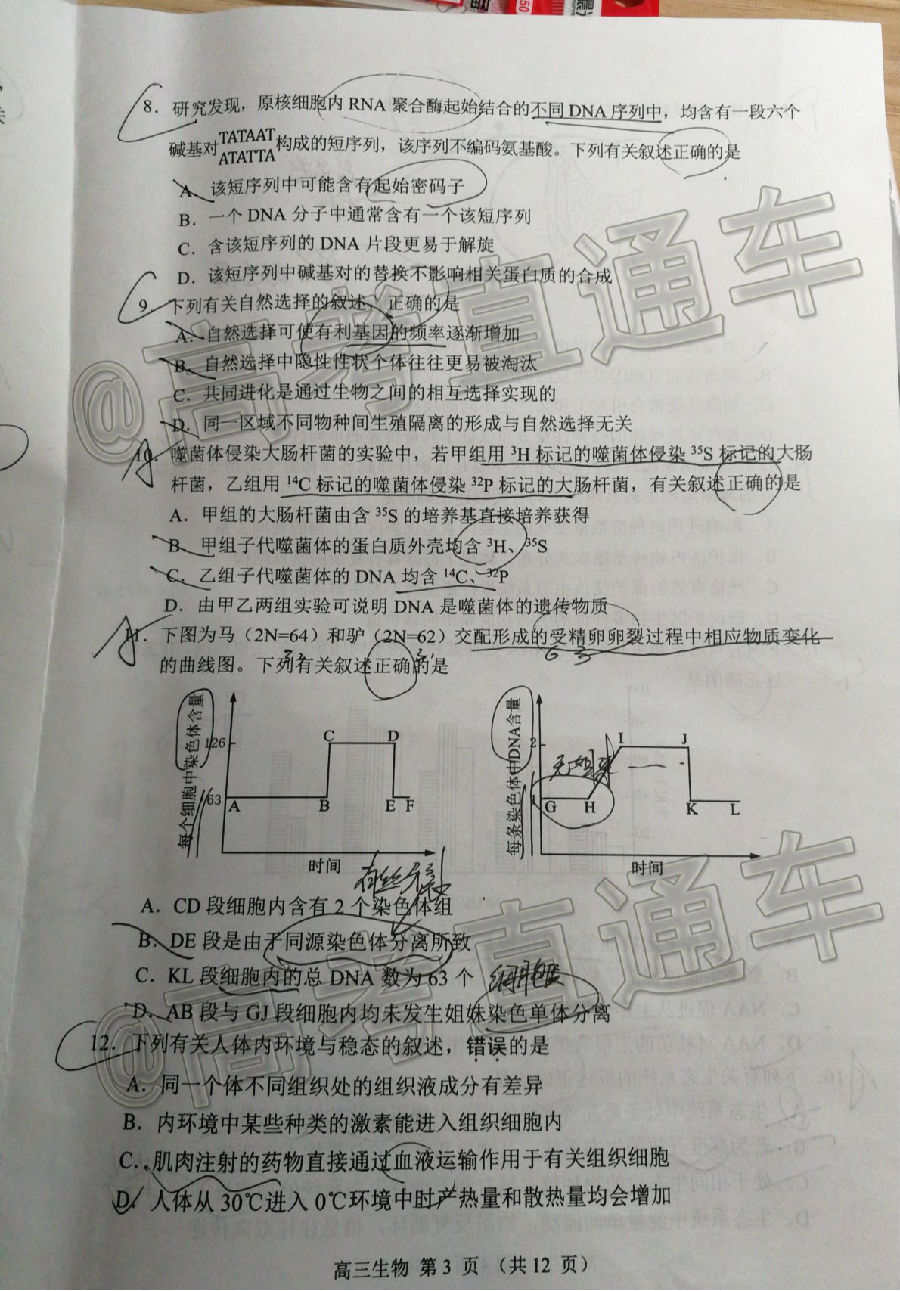 8．研究发现，原核细胞内 RNA 聚合酶起始结合的不同 DNA 序列中，均含有一段六个
碱基对TATAAT构成的短序列，该序列不编码氨基酸。下列有关叙述正确的是
ATATTA
A．该短序列中可能含有起始密码子
B．一个 DNA 分子中通常含有一个该短序列
C．含该短序列的 DNA 片段更易于解旋
D．该短序列中碱基对的替换不影响相关蛋白质的合成
9．下列有关自然选择的叙述，正确的是
A．自然选择可使有利基因的频率逐渐增加
B．自然选择中隐性性状个体往往更易被淘汰
C．共同进化是通过生物之间的相互选择实现的
D．同一区域不同物种间生殖隔离的形成与自然选择无关
10．噬菌体侵染大肠杆菌的实验中，若甲组用 ³H 标记的噬菌体侵染 ³⁵S 标记的大肠
杆菌，乙组用 ¹⁴C 标记的噬菌体侵染 ³²P 标记的大肠杆菌，有关叙述正确的是
A．甲组的大肠杆菌由含 ³⁵S 的培养基直接培养获得
B．甲组子代噬菌体的蛋白质外壳均含 ³H、³⁵S
C．乙组子代噬菌体的 DNA 均含 ¹⁴C、³²P
D．由甲乙两组实验可说明 DNA 是噬菌体的遗传物质
11．下图为马（2N=64）和驴（2N=62）交配形成的受精卵卵裂过程中相应物质变化
的曲线图。下列有关叙述正确的是
每个细胞中染色体含量
126
63
A B C D E F
时间
每条染色体中DNA含量
2
1
G H I J K L
时间
无姐
有丝分裂
A．CD 段细胞内含有 2 个染色体组
B．DE 段是由于同源染色体分离所致
C．KL 段细胞内的总 DNA 数为 63 个
细胞质
D．AB 段与 GJ 段细胞内均未发生姐妹染色单体分离
12．下列有关人体内环境与稳态的叙述，错误的是
A．同一个体不同组织处的组织液成分有差异
B．内环境中某些种类的激素能进入组织细胞内
C．肌肉注射的药物直接通过血液运输作用于有关组织细胞
D．人体从 30℃进入 0℃环境中时产热量和散热量均会增加
高三生物 第 3 页 （共 12 页）
@高考直通车
@高考直通车